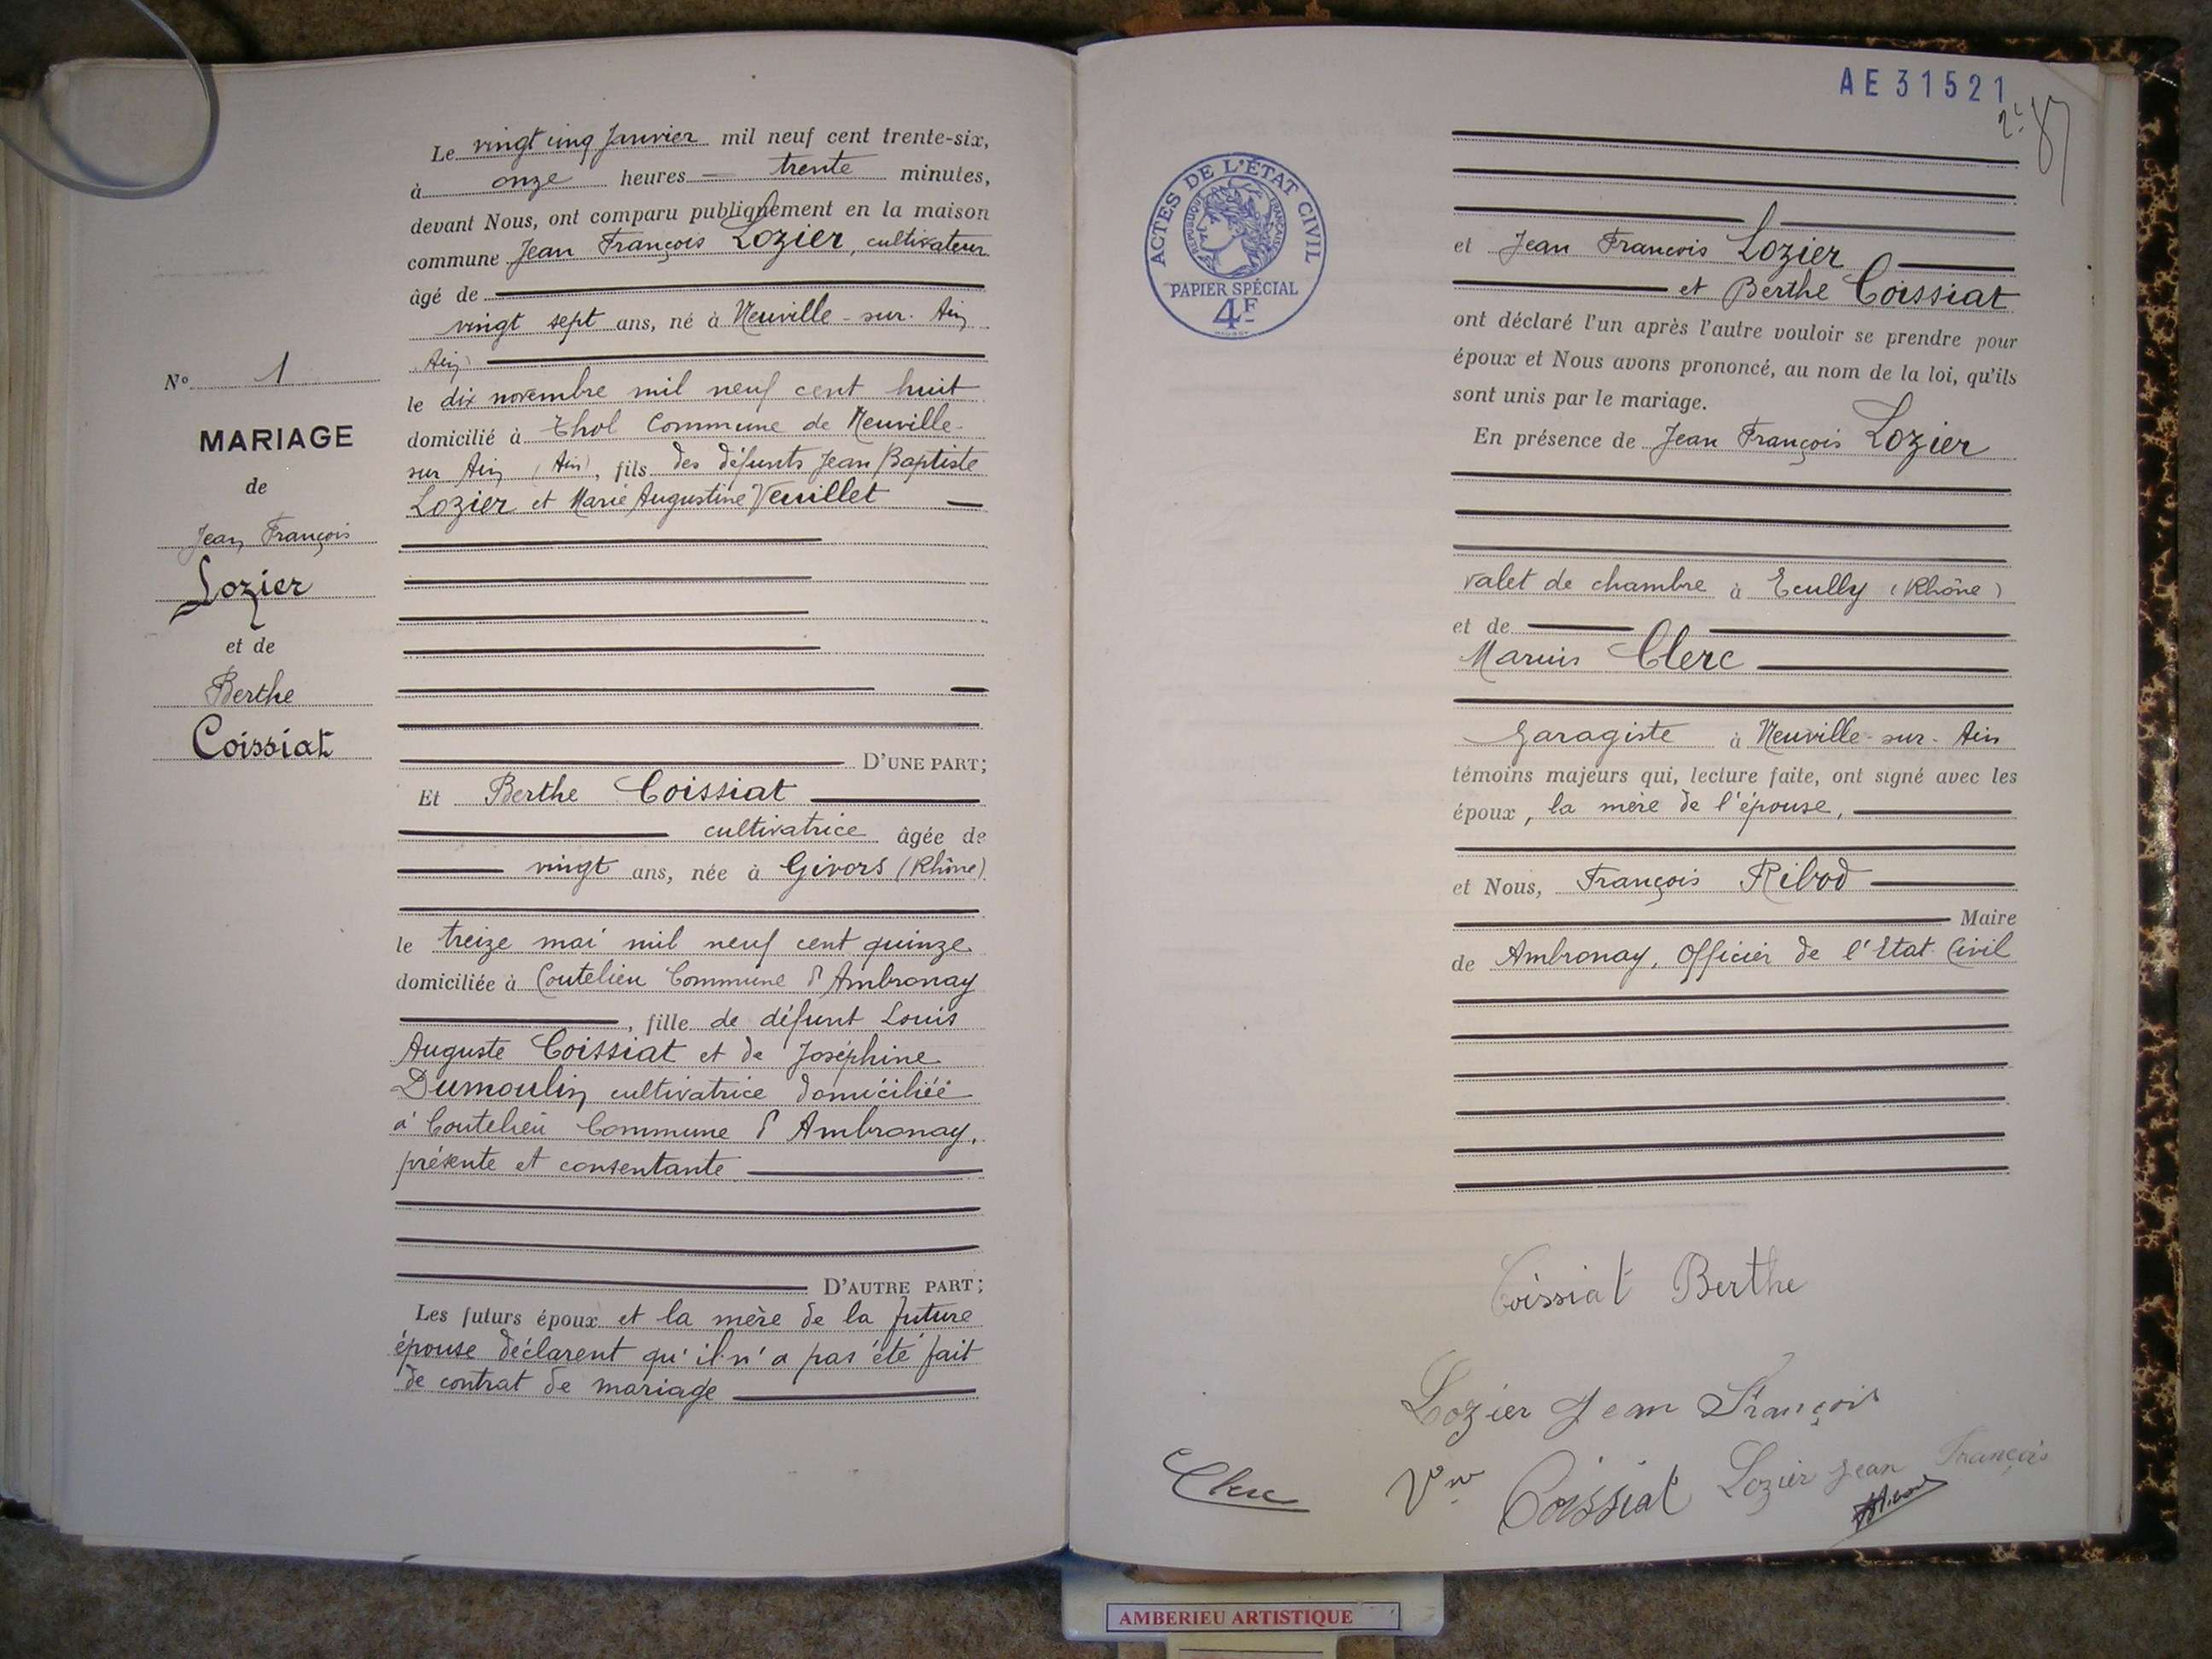 Le vingt cinq Janvier mil neuf cent trente-six,
à onze heures trente minutes,
devant Nous, ont comparu publiquement en la maison
commune Jean François Lozier, cultivateur
âgé de
vingt sept ans, né à Neuville-sur-Ain
(Ain)
le dix novembre mil neuf cent huit
domicilié à Thol Commune de Neuville-
sur Ain (Ain), fils des défunts Jean Baptiste
Lozier et Marie Augustine Veuillet
D'UNE PART;
Et Berthe Coissiat
cultivatrice âgée de
vingt ans, née à Givors (Rhône)
le treize mai mil neuf cent quinze
domiciliée à Coutelieu Commune d'Ambronay
, fille de défunt Louis
Auguste Coissiat et de Joséphine
Dumoulin cultivatrice domiciliée
à Coutelieu Commune d'Ambronay,
présente et consentante
D'AUTRE PART;
Les futurs époux et la mère de la future
épouse déclarent qu'il n'a pas été fait
de contrat de mariage
N° 1
MARIAGE
de
Jean François
Lozier
et de
Berthe
Coissiat
AE31521
ACTES DE L'ÉTAT CIVIL
RÉPUBLIQUE FRANÇAISE
PAPIER SPÉCIAL
4F
et Jean François Lozier
et Berthe Coissiat
ont déclaré l'un après l'autre vouloir se prendre pour
époux et Nous avons prononcé, au nom de la loi, qu'ils
sont unis par le mariage.
En présence de Jean François Lozier
valet de chambre à Ecully (Rhône)
et de
Marius Clerc
Garagiste à Neuville-sur-Ain
témoins majeurs qui, lecture faite, ont signé avec les
époux, la mère de l'épouse,
et Nous, François Ribod
Maire
de Ambronay, Officier de l'Etat Civil
Coissiat Berthe
Lozier Jean François
Clerc Vve Coissiat Lozier Jean François
AMBERIEU ARTISTIQUE